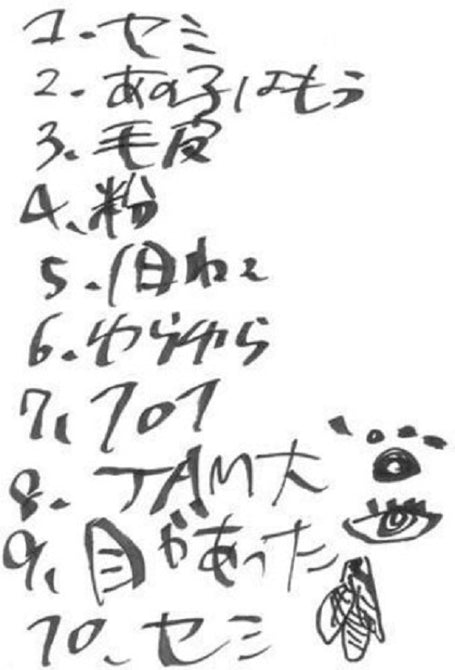 1.セミ
2.あの子はもう
3.毛皮
4.粉
5.1日ねこ
6.ゆらゆら
7.
8.JAM大
9.目があった
10.セミ